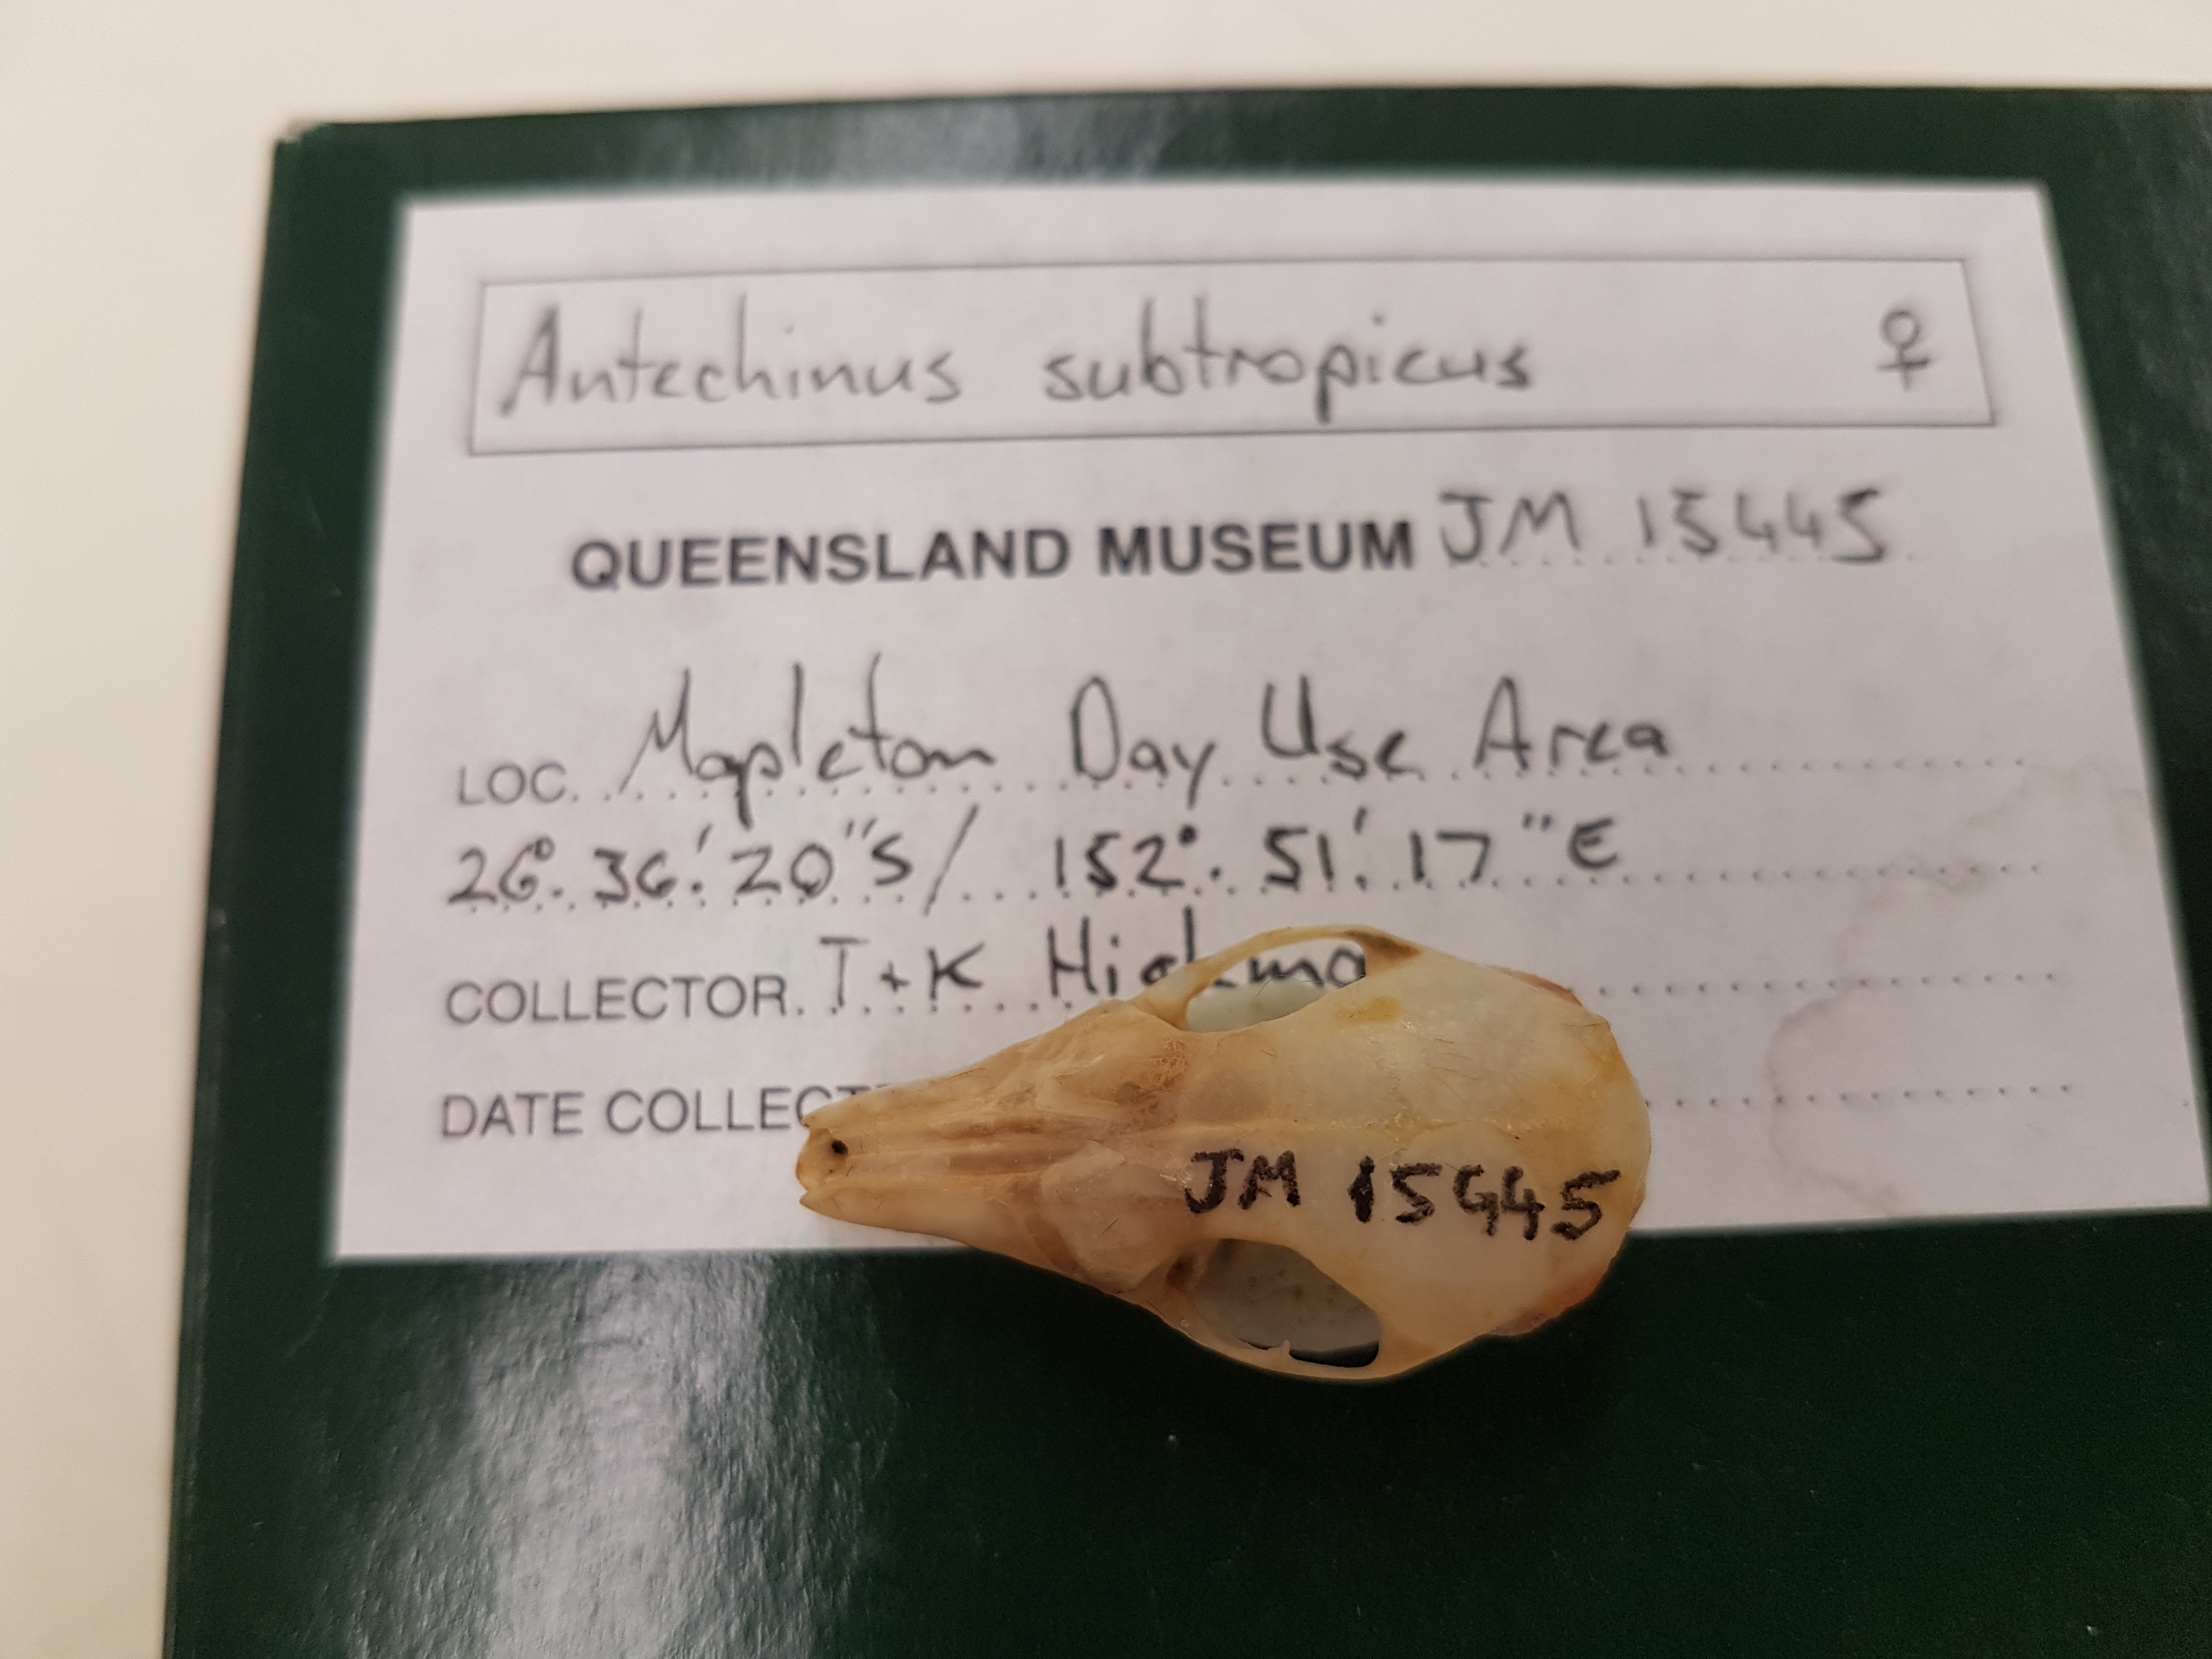 Antechinus subtropicus ♀
QUEENSLAND MUSEUM JM 15445
LOC. Mapleton Day Use Area
26°. 36'. 20"S / 152°. 51'. 17"E
COLLECTOR. T + K
DATE
JM 15445